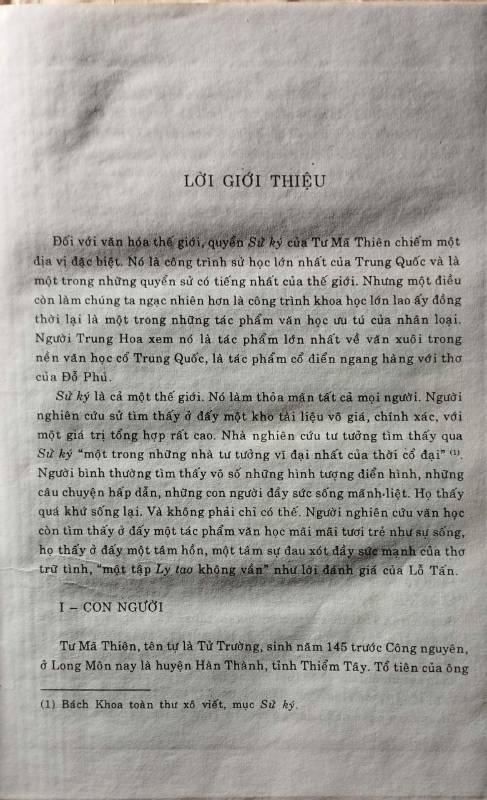 LỜI GIỚI THIỆU
Đối với văn hóa thế giới, quyển Sử ký của Tư Mã Thiên chiếm một
địa vị đặc biệt. Nó là công trình sử học lớn nhất của Trung Quốc và là
một trong những quyển sử có tiếng nhất của thế giới. Nhưng một điều
còn làm chúng ta ngạc nhiên hơn là công trình khoa học lớn lao ấy đồng
thời lại là một trong những tác phẩm văn học ưu tú của nhân loại.
Người Trung Hoa xem nó là tác phẩm lớn nhất về văn xuôi trong
nền văn học cổ Trung Quốc, là tác phẩm cổ điển ngang hàng với thơ
của Đỗ Phủ.
Sử ký là cả một thế giới. Nó làm thỏa mãn tất cả mọi người. Người
nghiên cứu sử tìm thấy ở đấy một kho tài liệu vô giá, chính xác, với
một giá trị tổng hợp rất cao. Nhà nghiên cứu tư tưởng tìm thấy qua
Sử ký “một trong những nhà tư tưởng vĩ đại nhất của thời cổ đại” (1).
Người bình thường tìm thấy vô số những hình tượng điển hình, những
câu chuyện hấp dẫn, những con người đầy sức sống mãnh-liệt. Họ thấy
quá khứ sống lại. Và không phải chỉ có thế. Người nghiên cứu văn học
còn tìm thấy ở đấy một tác phẩm văn học mãi mãi tươi trẻ như sự sống,
họ thấy ở đấy một tâm hồn, một tâm sự đau xót đầy sức mạnh của thơ
trữ tình, “một tập Ly tao không vần” như lời đánh giá của Lỗ Tấn.
I – CON NGƯỜI
Tư Mã Thiên, tên tự là Tử Trường, sinh năm 145 trước Công nguyên,
ở Long Môn nay là huyện Hàn Thành, tỉnh Thiểm Tây. Tổ tiên của ông
(1) Bách Khoa toàn thư xô viết, mục Sử ký.